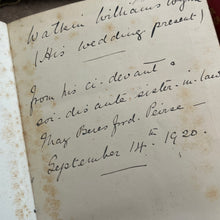 Watkin Williams Wynn
(His wedding present)
from his ci-devant &
soi-disante sister-in-law
May Beresford-Peirse -
September 14th 1920.